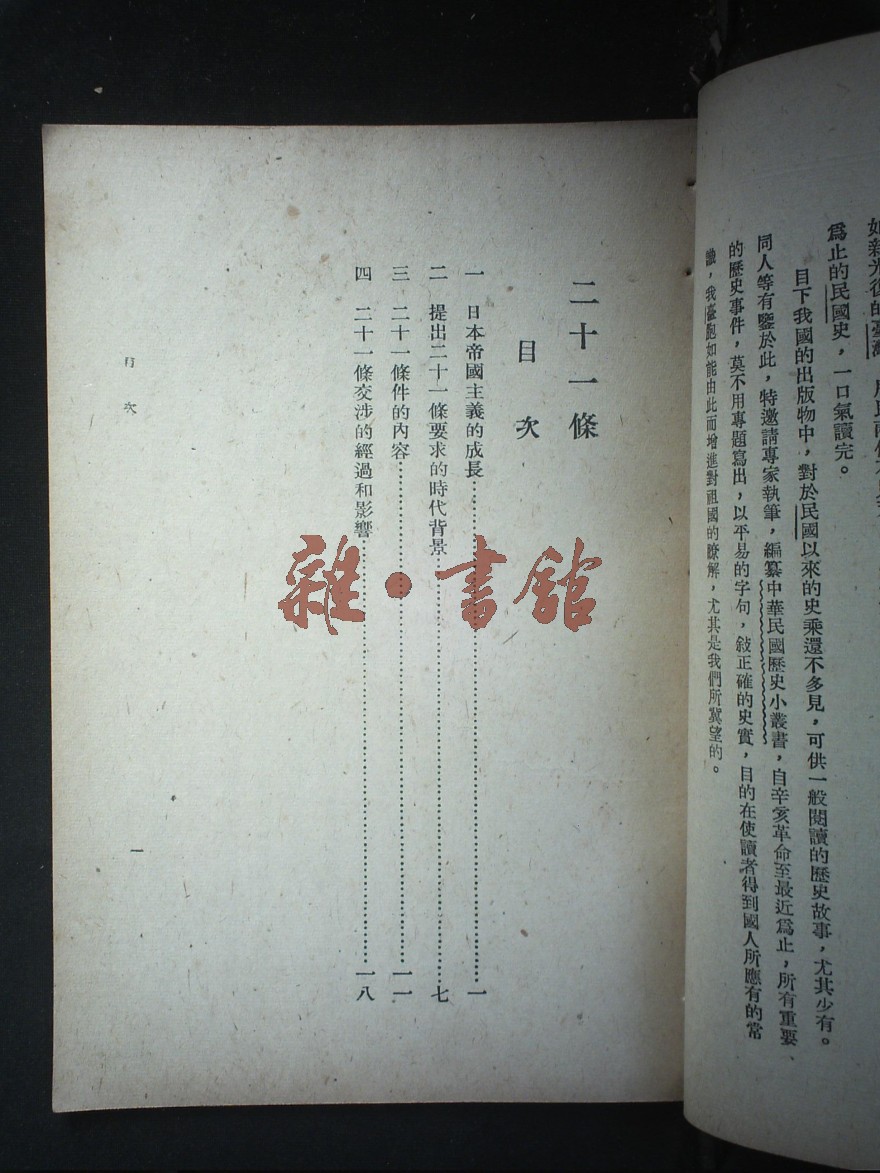 如新光復的臺灣
爲止的民國史，一口氣讀完。
目下我國的出版物中，對於民國以來的史乘還不多見，可供一般閱讀的歷史故事，尤其少有。
同人等有鑒於此，特邀請專家執筆，編纂中華民國歷史小叢書，自辛亥革命至最近爲止，所有重要、
的歷史事件，莫不用專題寫出，以平易的字句，敍正確的史實，目的在使讀者得到國人所應有的常
識，我臺胞如能由此而增進對祖國的瞭解，尤其是我們所冀望的。
二十一條
目次
一 日本帝國主義的成長……一
二 提出二十一條要求的時代背景……七
三 二十一條件的內容……一一
四 二十一條交涉的經過和影響……一八
目次
一
雜·書館